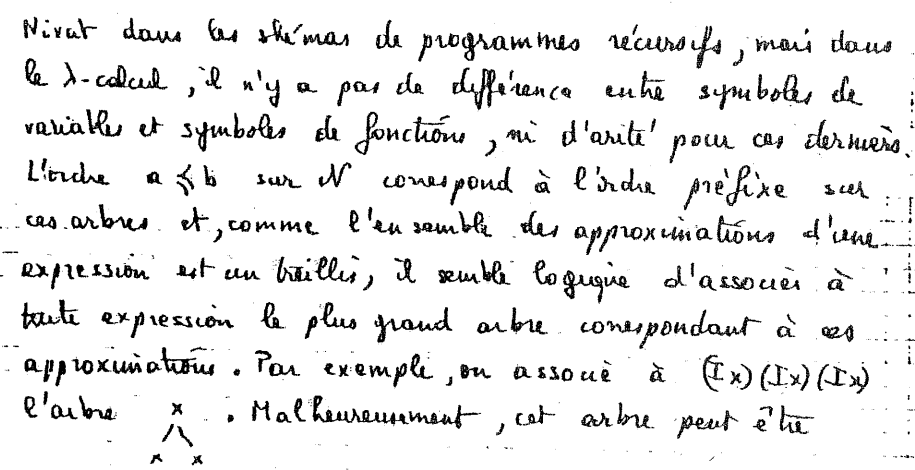 Nivat dans les shémas de programmes récursifs, mais dans
le λ-calcul, il n'y a pas de différence entre symboles de
variables et symboles de fonctions, ni d'arité pour ces derniers.
L'ordre a ≤ b sur N correspond à l'ordre préfixe sur
ces arbres et, comme l'ensemble des approximations d'une
expression est un treillis, il semble logique d'associer à
toute expression le plus grand arbre correspondant à ses
approximations. Par exemple, on associe à (Ix)(Ix)(Ix)
l'arbre x . Malheureusement, cet arbre peut être
x x